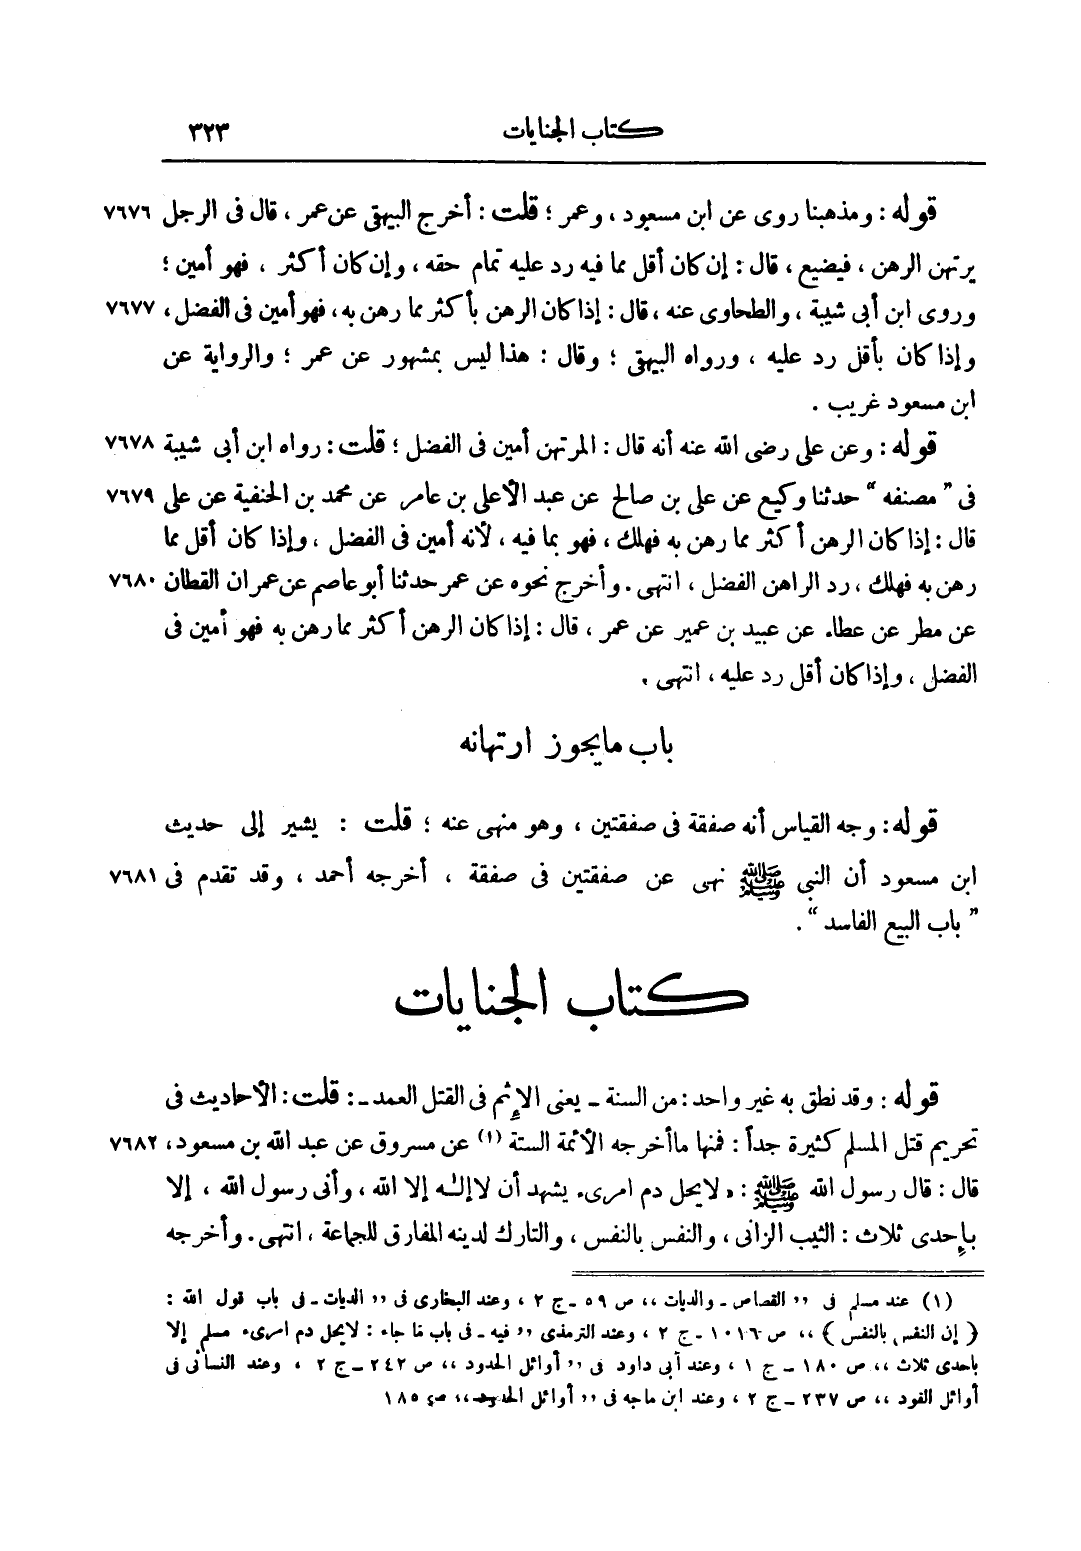 كتاب الجنايات ٣٢٣
قوله: ومذهبنا روى عن ابن مسعود، وعمر؛ قلت: أخرج البيهقى عن عمر، قال فى الرجل ٧٦٧٦
يرتهن الرهن، فيضيع، قال: إن كان أقل مما فيه رد عليه تمام حقه، وإن كان أكثر، فهو أمين؛
وروى ابن أبى شيبة، والطحاوى عنه، قال: إذا كان الرهن بأكثر مما رهن به، فهو أمين فى الفضل، ٧٦٧٧
وإذا كان بأقل رد عليه، ورواه البيهقى؛ وقال: هذا ليس بمشهور عن عمر؛ والرواية عن
ابن مسعود غريب.
قوله: وعن على رضى الله عنه أنه قال: المرتهن أمين فى الفضل؛ قلت: رواه ابن أبى شيبة ٧٦٧٨
فى "مصنفه" حدثنا وكيع عن على بن صالح عن عبد الأعلى بن عامر عن محمد بن الحنفية عن على ٧٦٧٩
قال: إذا كان الرهن أكثر مما رهن به فهلك، فهو بما فيه، لأنه أمين فى الفضل، وإذا كان أقل مما
رهن به فهلك، رد الراهن الفضل، انتهى. وأخرج نحوه عن عمر حدثنا أبو عاصم عن عمران القطان ٧٦٨٠
عن مطر عن عطاء عن عبيد بن عمير عن عمر، قال: إذا كان الرهن أكثر مما رهن به فهو أمين فى
الفضل، وإذا كان أقل رد عليه، انتهى.
باب مايجوز ارتهانه
قوله: وجه القياس أنه صفقة فى صفقتين، وهو منهى عنه؛ قلت: يشير إلى حديث
ابن مسعود أن النبى ﷺ نهى عن صفقتين فى صفقة، أخرجه أحمد، وقد تقدم فى ٧٦٨١
"باب البيع الفاسد".
كتاب الجنايات
قوله: وقد نطق به غير واحد: من السنة ـ يعنى الإثم فى القتل العمد ـ: قلت: الأحاديث فى
تحريم قتل المسلم كثيرة جداً: فمنها ما أخرجه الأئمة الستة (١) عن مسروق عن عبد الله بن مسعود، ٧٦٨٢
قال: قال رسول الله ﷺ: «لايحل دم امرىء يشهد أن لا إله إلا الله، وأنى رسول الله، إلا
بإحدى ثلاث: الثيب الزانى، والنفس بالنفس، والتارك لدينه المفارق للجماعة، انتهى. وأخرجه
(١) عند مسلم فى ,, القصاص ـ والديات ،، ص ٥٩ ـ ج ٢، وعند البخارى فى ,, الديات ـ فى باب قول الله:
﴿ إن النفس بالنفس ﴾ ،، ص ١٠١٦ ـ ج ٢، وعند الترمذى ,, فيه ـ فى باب ما جاء: لايحل دم امرىء مسلم إلا
باحدى ثلاث ،، ص ١٨٠ ـ ج ١، وعند أبى داود فى ,, أوائل الحدود ،، ص ٢٤٢ ـ ج ٢، وعند النسائى فى
أوائل القود ،، ص ٢٣٧ ـ ج ٢، وعند ابن ماجه فى ,, أوائل الحدود ،، ص ١٨٥